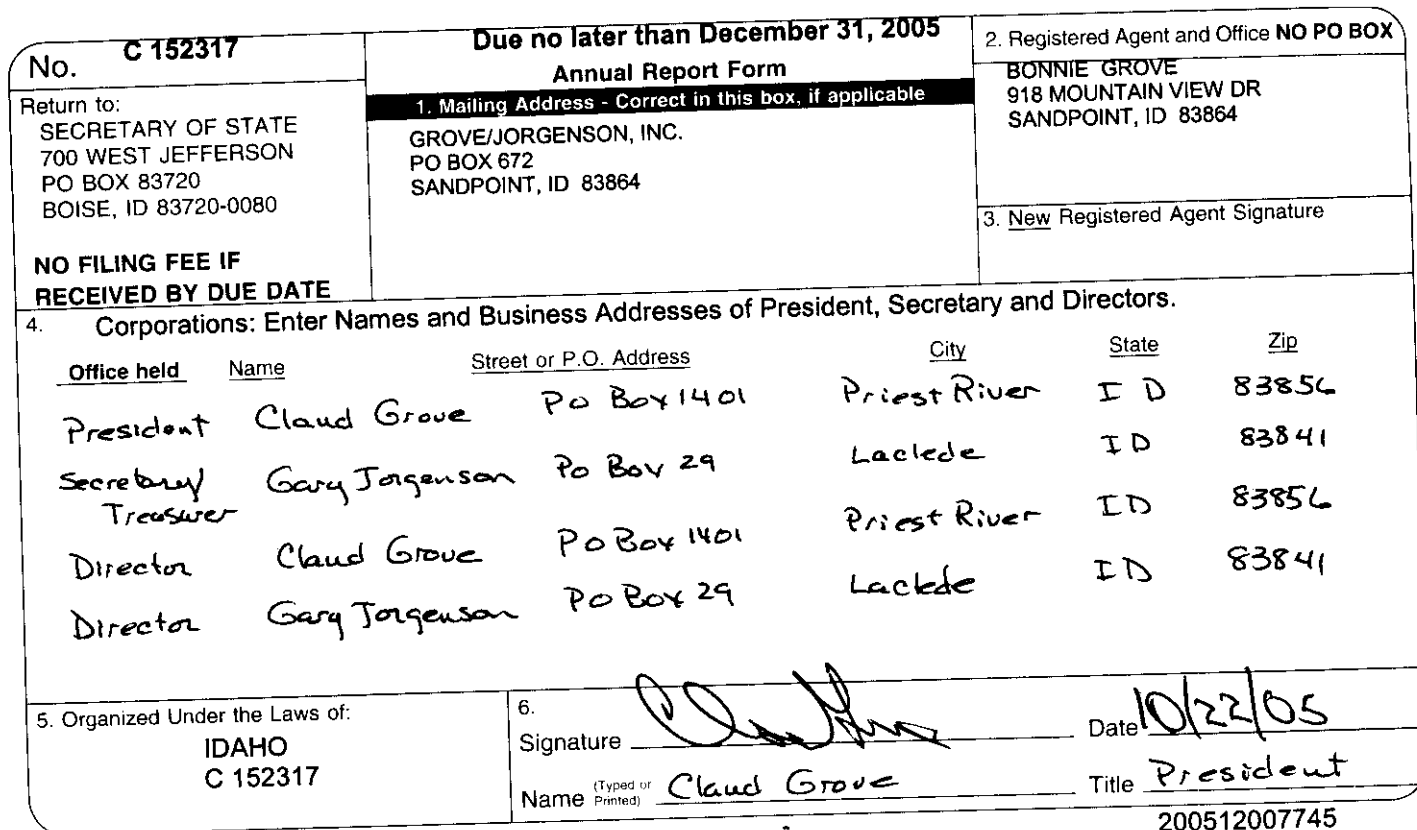 No. C 152317
Return to:
SECRETARY OF STATE
700 WEST JEFFERSON
PO BOX 83720
BOISE, ID 83720-0080
NO FILING FEE IF
RECEIVED BY DUE DATE
Due no later than December 31, 2005
Annual Report Form
1. Mailing Address - Correct in this box, if applicable
GROVE/JORGENSON, INC.
PO BOX 672
SANDPOINT, ID 83864
2. Registered Agent and Office NO PO BOX
BONNIE GROVE
918 MOUNTAIN VIEW DR
SANDPOINT, ID 83864
3. New Registered Agent Signature
4. Corporations: Enter Names and Business Addresses of President, Secretary and Directors.
Office held Name Street or P.O. Address City State Zip
President Claud Grove Po Box 1401 Priest River ID 83856
Secretary/ Gary Jorgenson Po Box 29 Laclede ID 83841
Treasurer
Director Claud Grove PO Box 1401 Priest River ID 83856
Director Gary Jorgenson PO Box 29 Laclede ID 83841
5. Organized Under the Laws of:
IDAHO
C 152317
6.
Signature Date 10/22/05
Name (Typed or Printed) Claud Grove Title President
200512007745